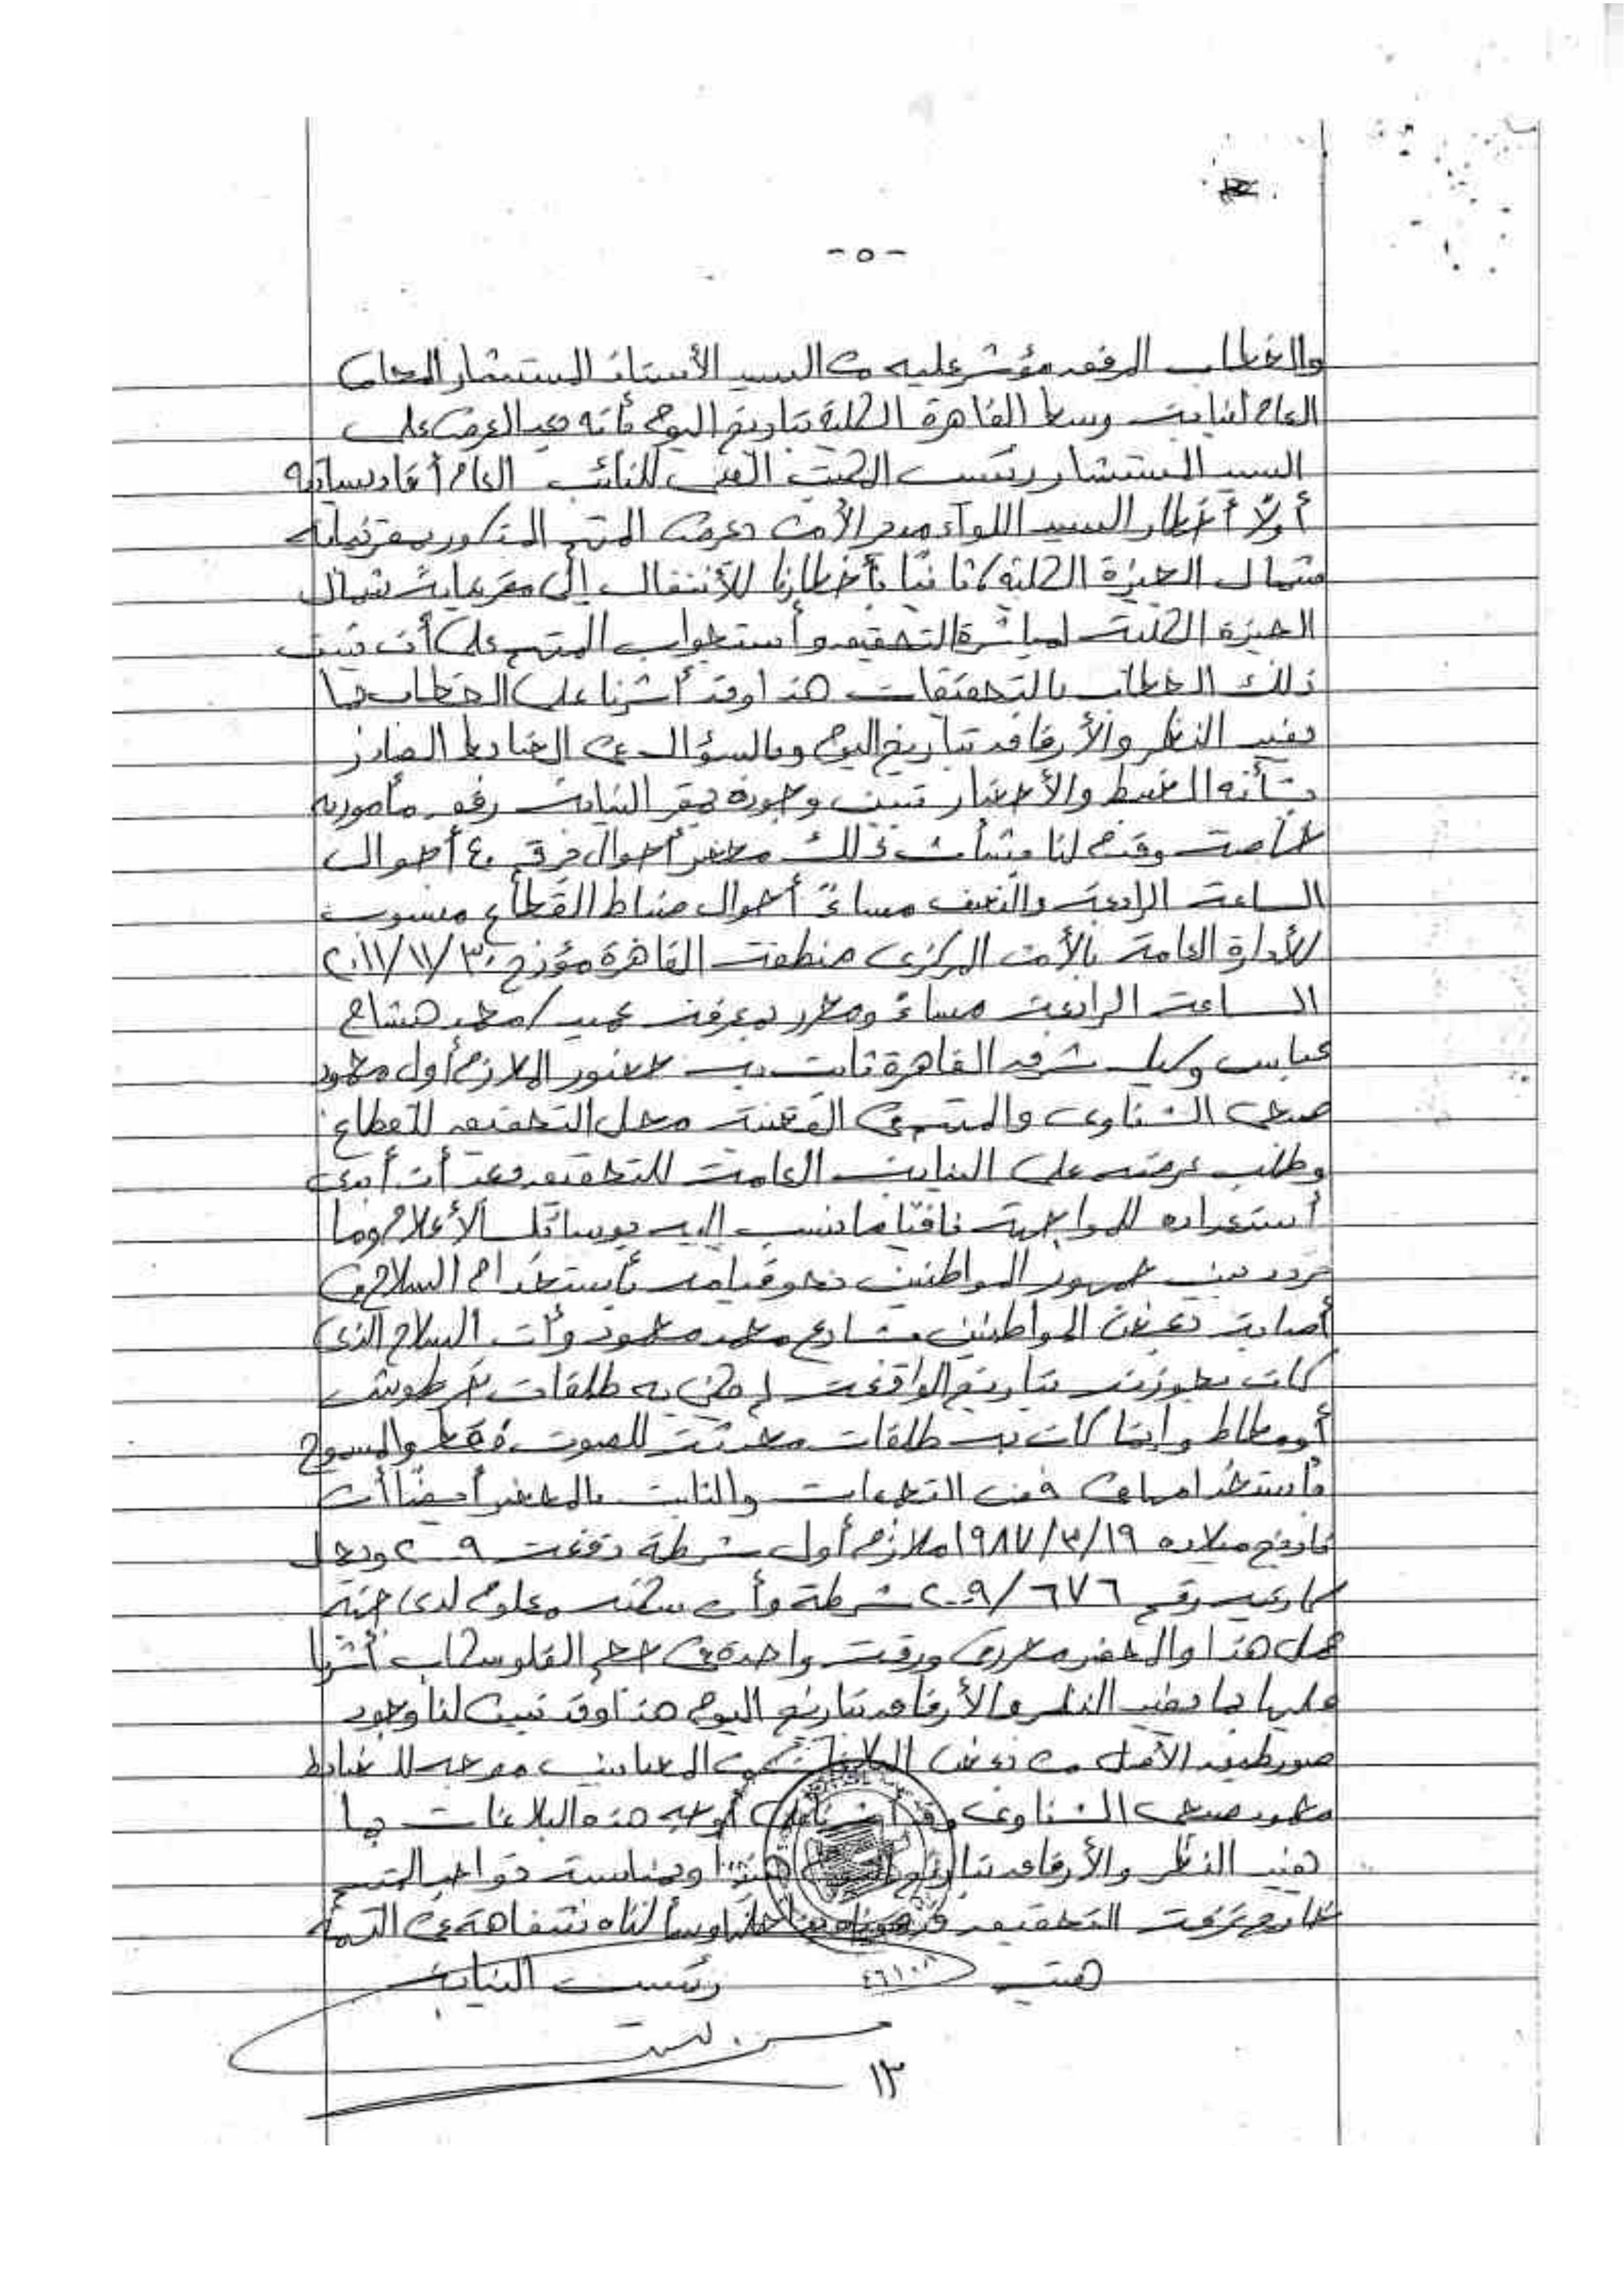 - ٥ -
والخطاب المرفق مؤشر عليه من السيد الأستاذ المستشار المحامى
العام لنيابة وسط القاهرة الكلية بتاريخ اليوم بأنه بعد العرض على
السيد المستشار رئيس المكتب الفنى للنائب العام أفاد بسيادته
أولاً أخطار السيد اللواء مدير الأمن بعرض المتهم المذكور بمقر نيابة
شمال الجيزة الكلية / ثانيًا بأخطارنا للأنتقال إلى مقر نيابة شمال
الجيزة الكلية لمباشرة التحقيق وأستجواب المتهم على أن يثبت
ذلك الخطاب بالتحقيقات هذا وقد أشرنا على الخطاب بما
يفيد النظر والأرفاق بتاريخ اليوم وبالسؤال عن الضابط الصادر
بشأنه الضبط والأحضار تبين وجوده بمقر النيابة رفق مأمورية
خاصة وقدم لنا بشأن ذلك محضر أحوال رقم ٤٠ أحوال
الساعة الرابعة والنصف مساءً أحوال ضباط القطاع منسوب
للأدارة العامة بالأمن المركزى منطقة القاهرة مؤرخ ٢٠١١/١١/٣٠
الساعة الرابعة مساءً ومحرر بمعرفة عميد / محمد هشام
عباس وكيل شرق القاهرة ثابت به حضور الملازم أول محمود
صبحى الشناوى والمتهم فى القضية محل التحقيق للقطاع
وطلب عرضه على النيابة العامة للتحقيق بعد أن أبدى
أستعداده للمواجهة نافيًا ما نسب إليه بوسائل الأعلام وما
تردد بين جمهور المواطنين نحو قيامه بأستخدام السلاح فى
أصابة بعض المواطنين بشارع محمد محمود وأن السلاح الذى
كان بحوزته بتاريخ الواقعة لم يكن به طلقات خرطوش
أو مطاط وإنما كان به طلقات محدثة للصوت فقط والمسموح
بأستخدامها فى فض التجمعات والثابت بالمحضر أيضًا أن
تاريخ ميلاده ١٩٨٧/٣/١٩ ملازم أول شرطة دفعة ٢٠٠٩ ويحمل
كارنيه رقم ٢٠٠٩/٦٧٦ شرطة وأن سكنه معلوم لدى جهة
عمل هذا والمحضر محرر فى ورقة واحدة فى حجم الفلوسكاب أشرنا
عليها بما يفيد النظر والأرفاق بتاريخ اليوم هذا وقد تبين لنا وجود
صور طبق الأصل من بعض البلاغات من المصابين موجه للضابط
محمود صبحى الشناوى وقد أشرنا على أوجه هذه البلاغات بما
يفيد النظر والأرفاق بتاريخ اليوم هذا وبمناسبة تواجد المتهم
خارج غرفة التحقيق دعوناه بداخلها وسألناه شفاهة عن التهمة
رئيس النيابة
١٣